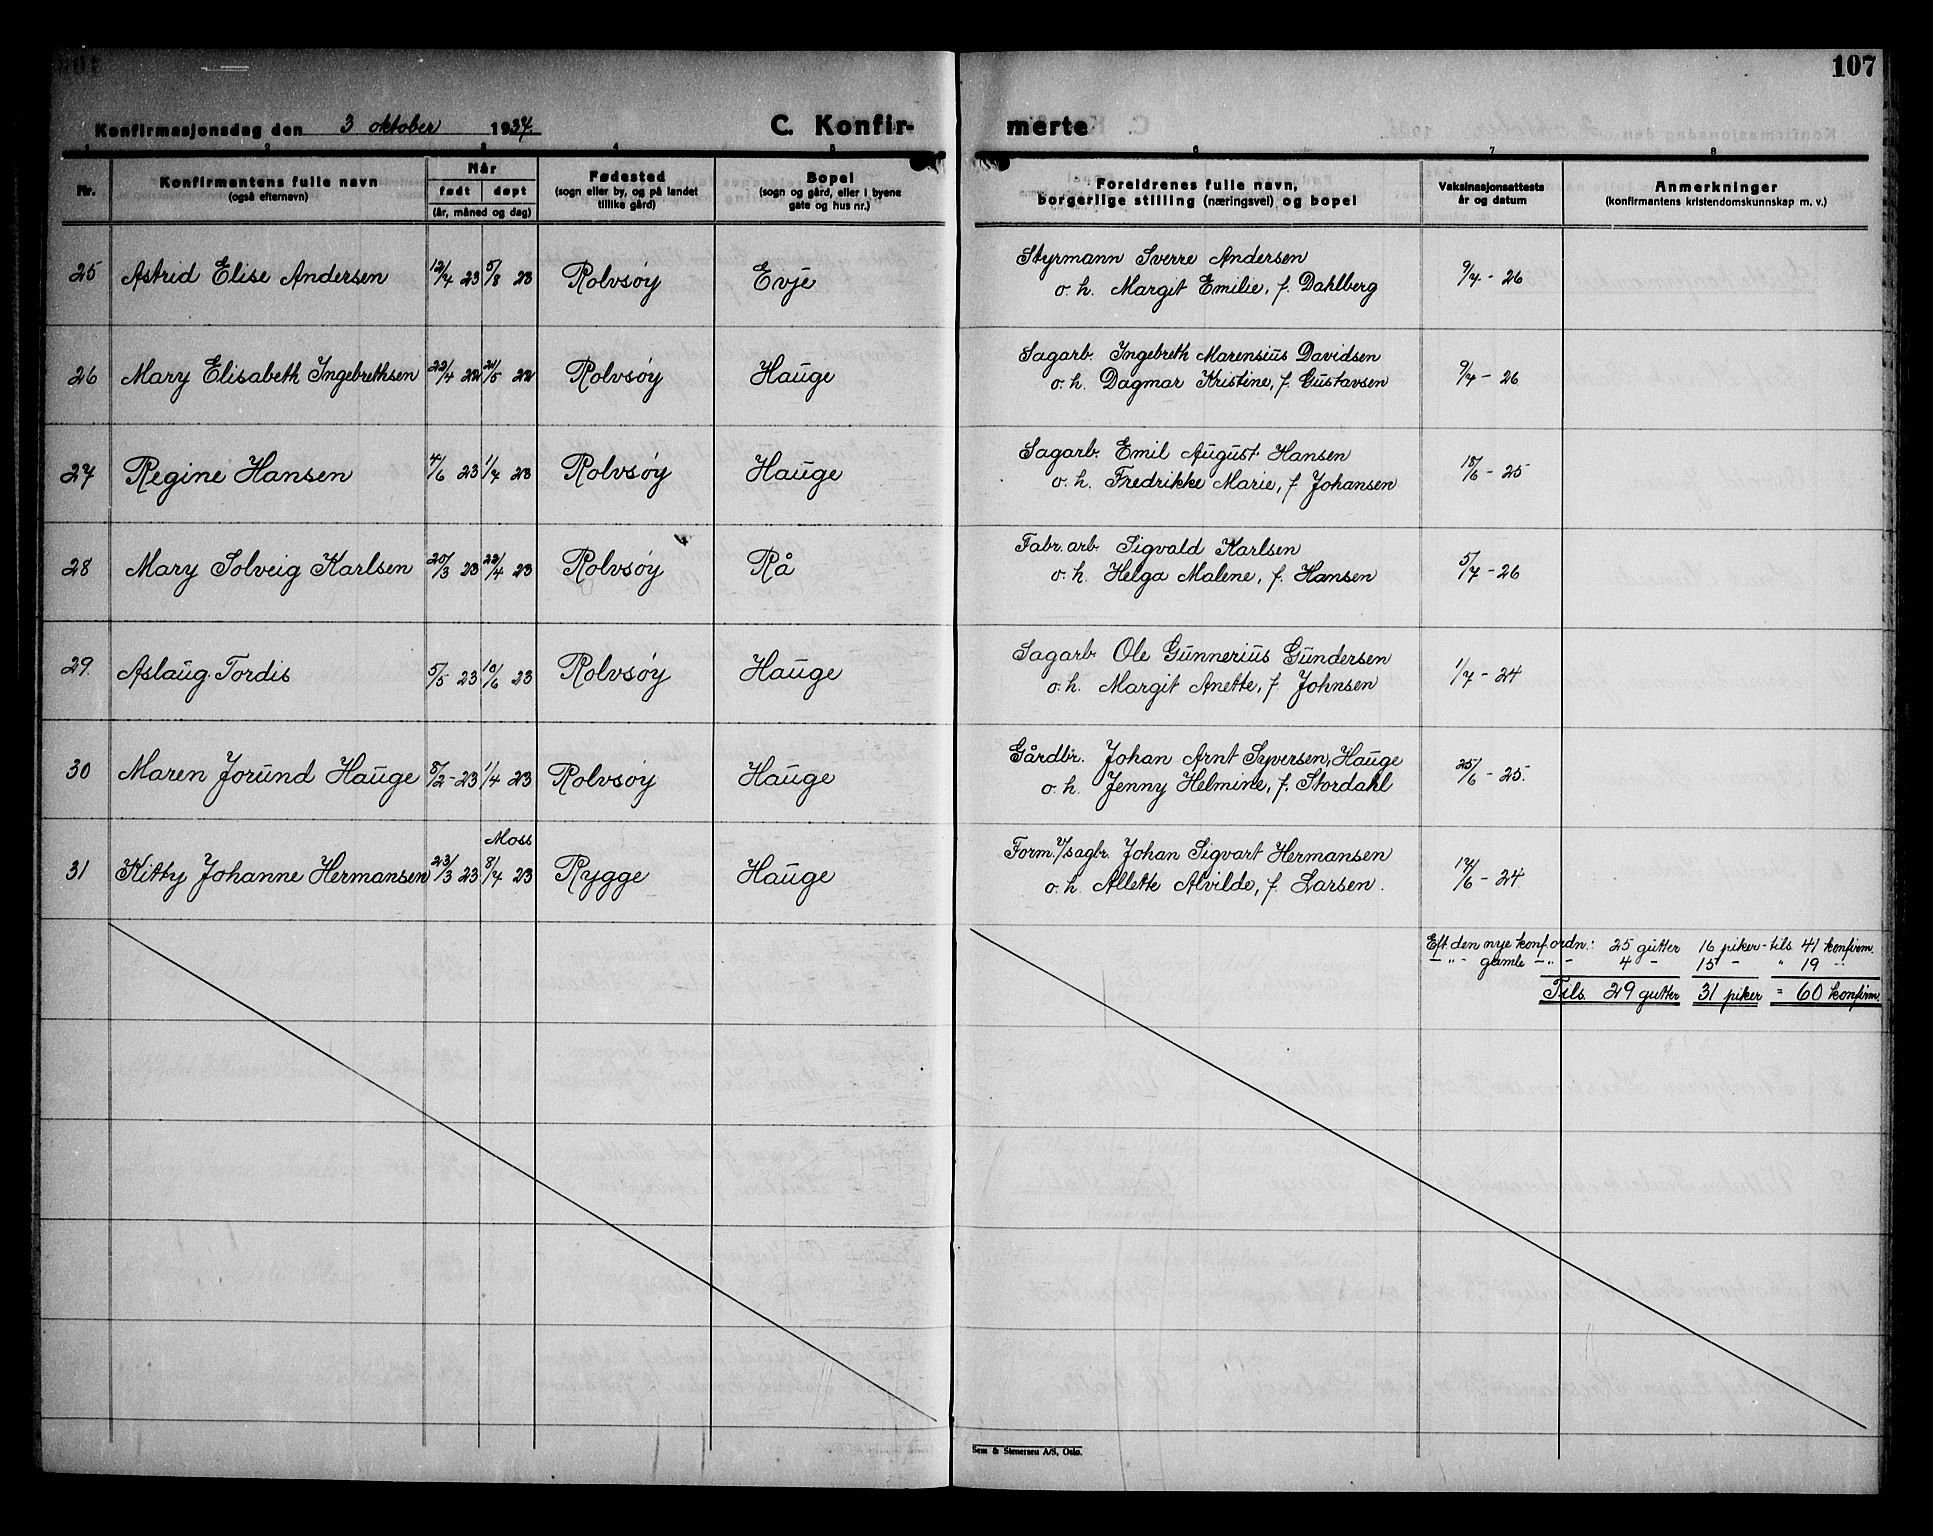 107
Konfirmasjonsdag den 3 oktober 1937. C. Konfir- merte
1 2 3 4 5 6 7 8
Nr. Konfirmantens fulle navn (også efternavn) Når født døpt (år, måned og dag) Fødested (sogn eller by, og på landet tillike gård) Bopel (sogn og gård, eller i byene gate og hus nr.) Foreldrenes fulle navn, borgerlige stilling (næringsvei) og bopel Vaksinasjonsattests år og datum Anmerkninger (konfirmantens kristendomskunnskap m. v.)
25 Astrid Elise Andersen 12/4 23 5/8 23 Rolvsøy Evje Styrmann Sverre Andersen 9/4 - 26
o. h. Margit Emilie, f. Dahlberg
26 Mary Elisabeth Ingebrethsen 22/4 22 21/5 22 Rolvsøy Hauge Sagarb. Ingebreth Marensius Davidsen 9/4 - 26
o. h. Dagmar Kristine, f. Gustavsen
27 Regine Hansen 4/6 23 1/7 23 Rolvsøy Hauge Sagarb. Emil August Hansen 18/6 - 25
o. h. Fredrikke Marie, f. Johansen
28 Mary Solveig Karlsen 20/3 23 22/4 23 Rolvsøy Rå Fabr. arb. Sigvald Karlsen 5/7 - 26
o. h. Helga Malene, f. Hansen
29. Aslaug Tordis 5/5 23 10/6 23 Rolvsøy Hauge Sagarb. Ole Gunnerius Gundersen 1/7 - 24
o. h. Margit Anette, f. Johnsen
30 Maren Jorund Hauge 8/2 - 23 1/4 23 Rolvsøy Hauge Gårdbr. Johan Arnt Syversen, Hauge 25/6 - 25.
o. h. Jenny Helmine, f. Stordahl
Moss
31 Kitty Johanne Hermansen 23/3 23 8/4 23 Rygge Hauge Form. v/sagbr. Johan Sigvart Hermansen 12/6 - 24
o. h. Allette Alvilde, f. Larsen.
Eft. den nye konf. ordn.: 25 gutter 16 piker - tils 41 konfirm.
- " - gamle - " - 4 - 15 - " 19 -
Tils. 29 gutter 31 piker = 60 konfirm.
Sem & Stenersen A/S, Oslo.